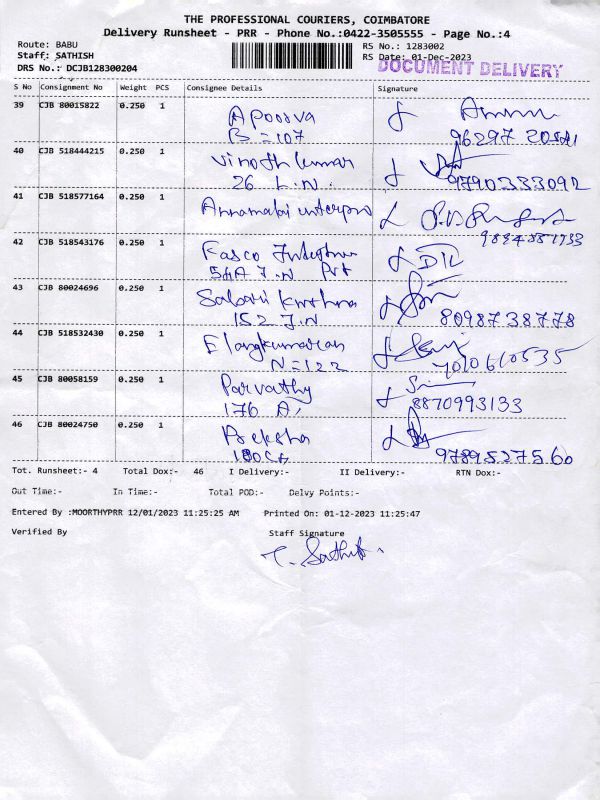 THE PROFESSIONAL COURIERS, COIMBATORE
Delivery Runsheet - PRR - Phone No.:0422-3505555 - Page No.:4
Route: BABU
RS No.: 1283002
Staff: SATHISH
RS Date: 01-Dec-2023
DRS No.: DCJB128300204
DOCUMENT DELIVERY
S No Consignment No Weight PCS Consignee Details Signature
39 CJB 80015822 0.250 1 Apoorva
B = 107
40 CJB 518444215 0.250 1 Vinoth kumar
26 L.N. 9790333092
41 CJB 518577164 0.250 1 Annamalai
42 CJB 518543176 0.250 1 Fasco
54A J.N Pvt
43 CJB 80024696 0.250 1 Sabari krishna
152 J.N 8098738778
44 CJB 518532430 0.250 1 Elangkumaran
N = 122 7010610535
45 CJB 80058159 0.250 1 Parvathy
176 A, 8870993133
46 CJB 80024750 0.250 1 Preksha
9789527560
Tot. Runsheet:- 4 Total Dox:- 46 I Delivery:- II Delivery:- RTN Dox:-
Out Time:- In Time:- Total POD:- Delvy Points:-
Entered By :MOORTHYPRR 12/01/2023 11:25:25 AM Printed On: 01-12-2023 11:25:47
Verified By Staff Signature
T. Sathish